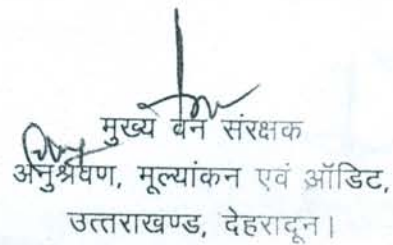 मुख्य वन संरक्षक
अनुश्रवण, मूल्यांकन एवं ऑडिट,
उत्तराखण्ड, देहरादून।